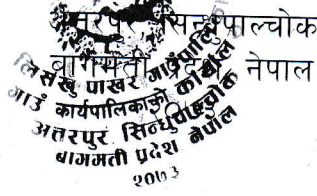 अत्तरपुर सिन्धुपाल्चोक
बागमती प्रदेश, नेपाल
लिसंखु पाखर गाउँपालिका
गाउँ कार्यपालिकाको कार्यालय
अत्तरपुर, सिन्धुपाल्चोक
बागमती प्रदेश नेपाल
२०७३